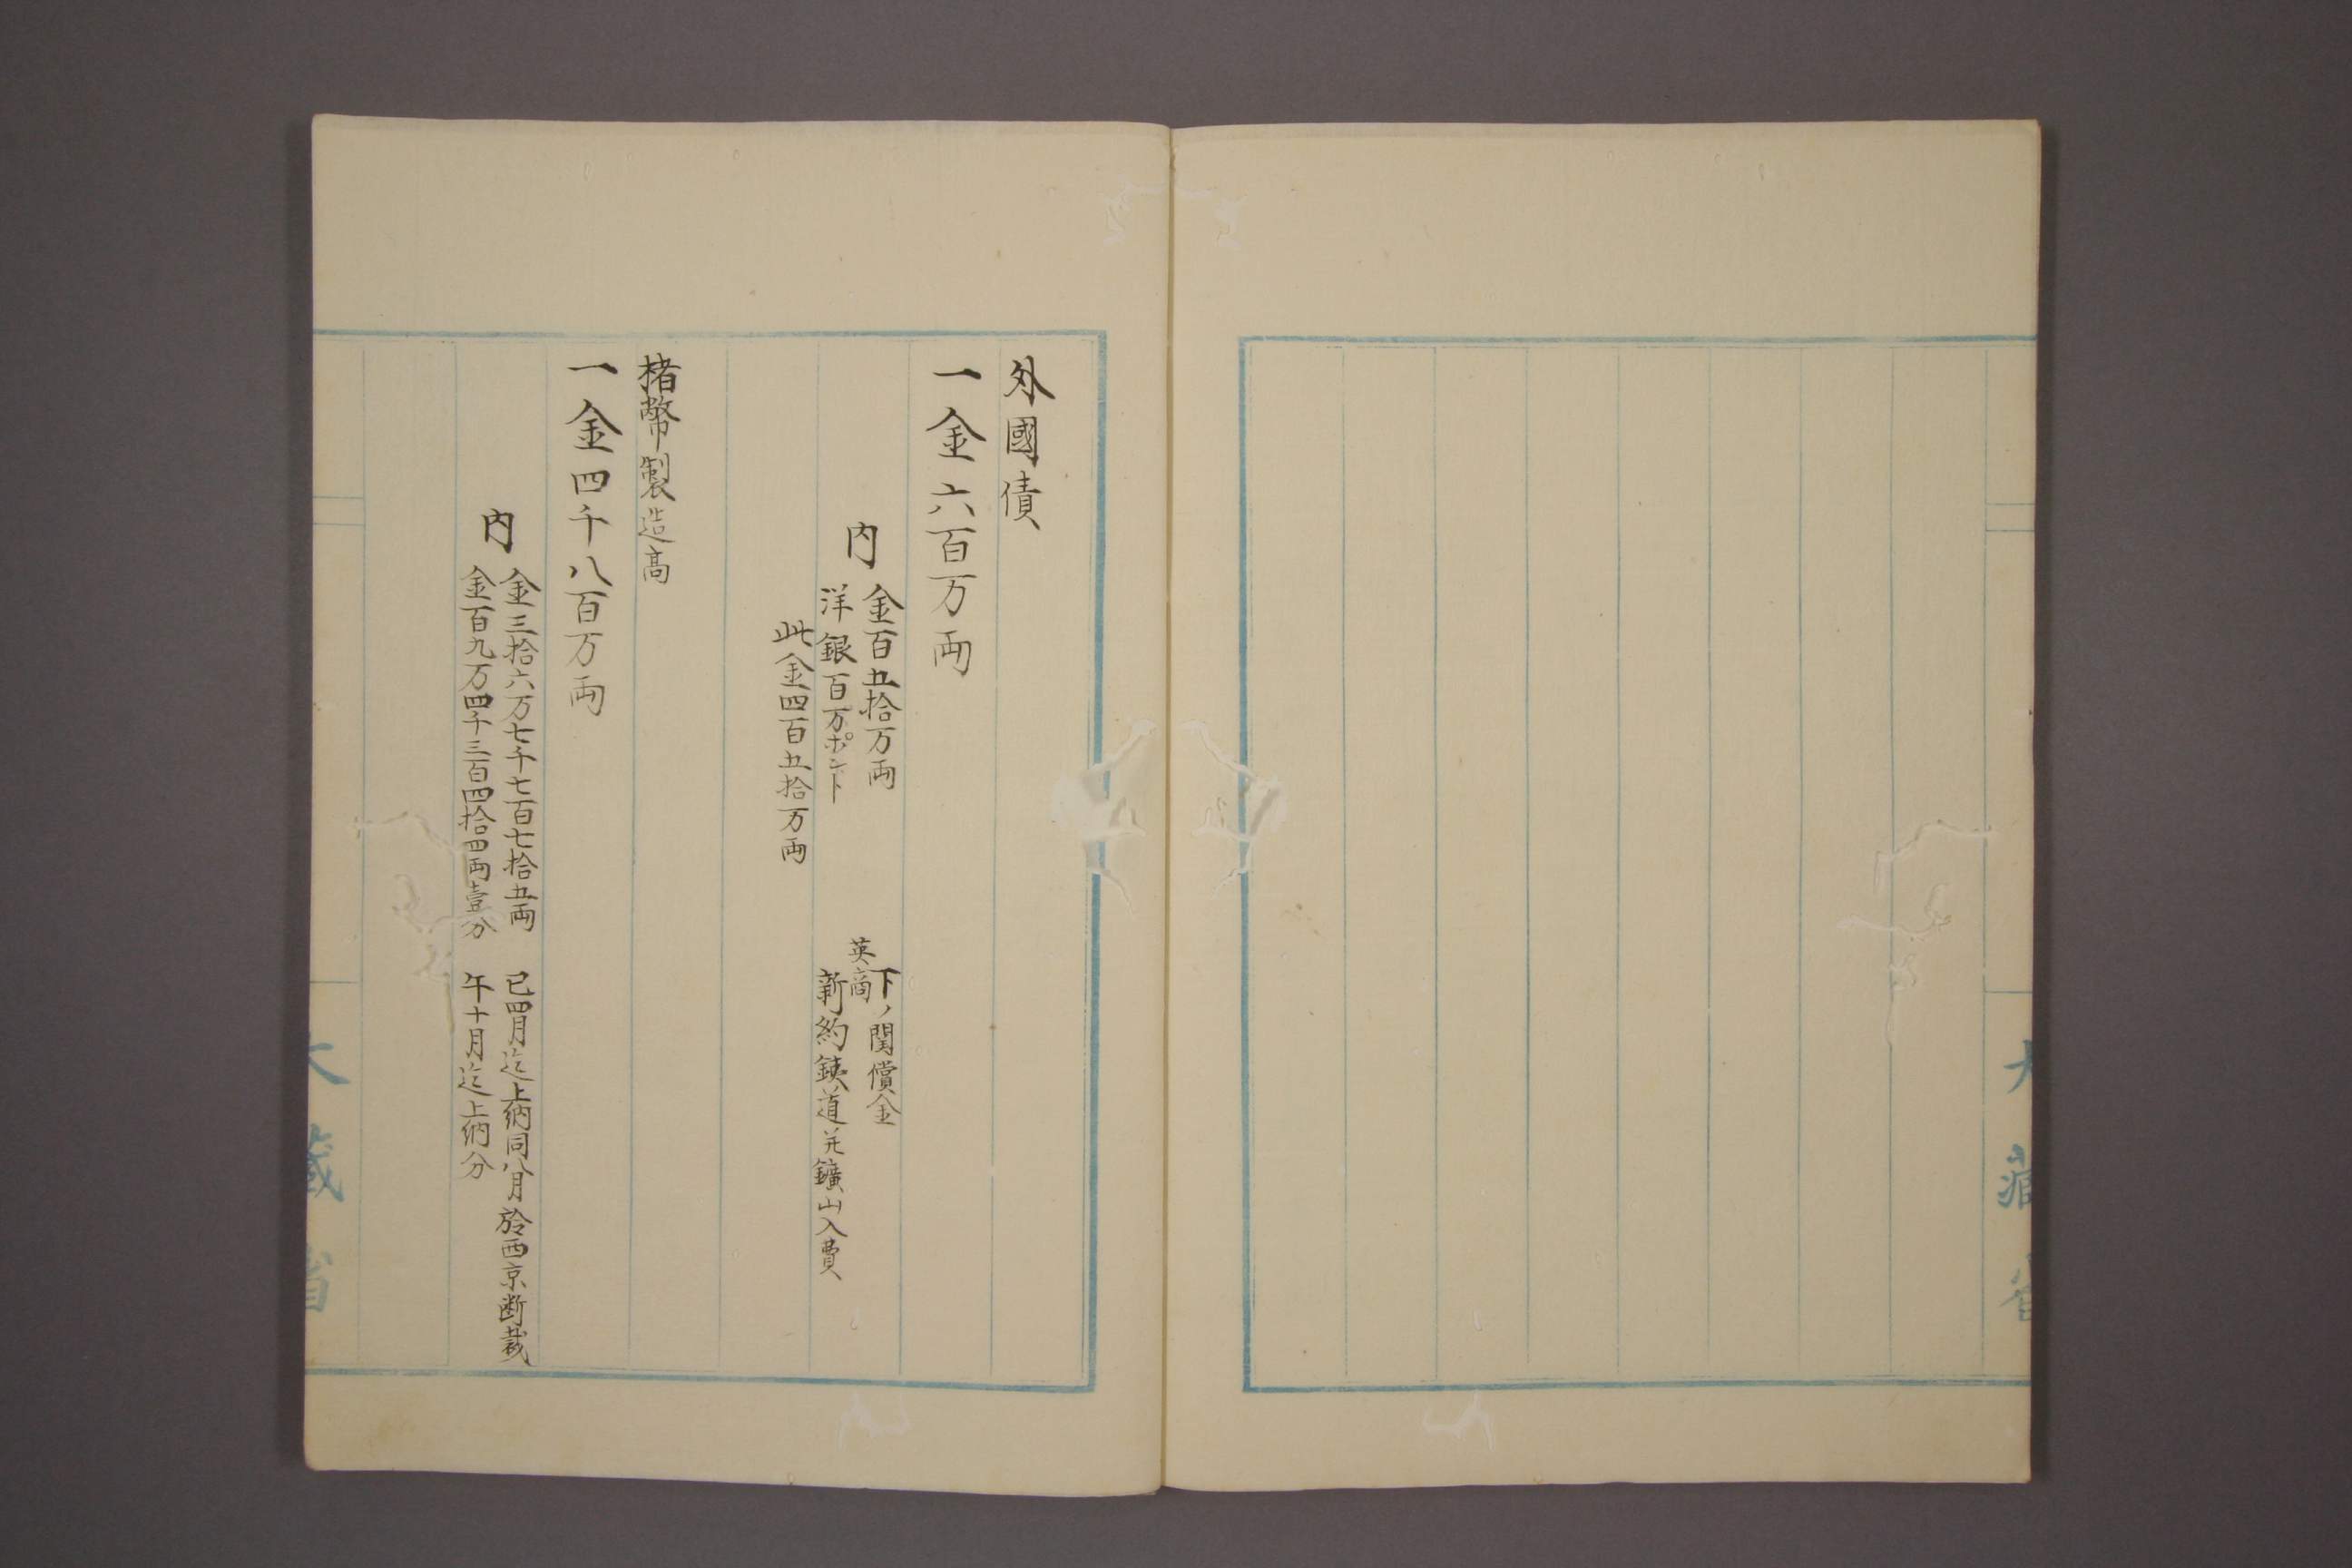 大藏省
外國債
一金六百万両
内
金百五拾万両
下ノ関償金
洋銀百万ポンド
英商
新約鉄道并鑛山入費
此金四百五拾万両
楮幣製造高
一金四千八百万両
内
金三拾六万七千七百七拾五両
巳四月迄上納同八月於西京断裁
金百九万四千三百四拾四両壹分
午十月迄上納分
大藏省